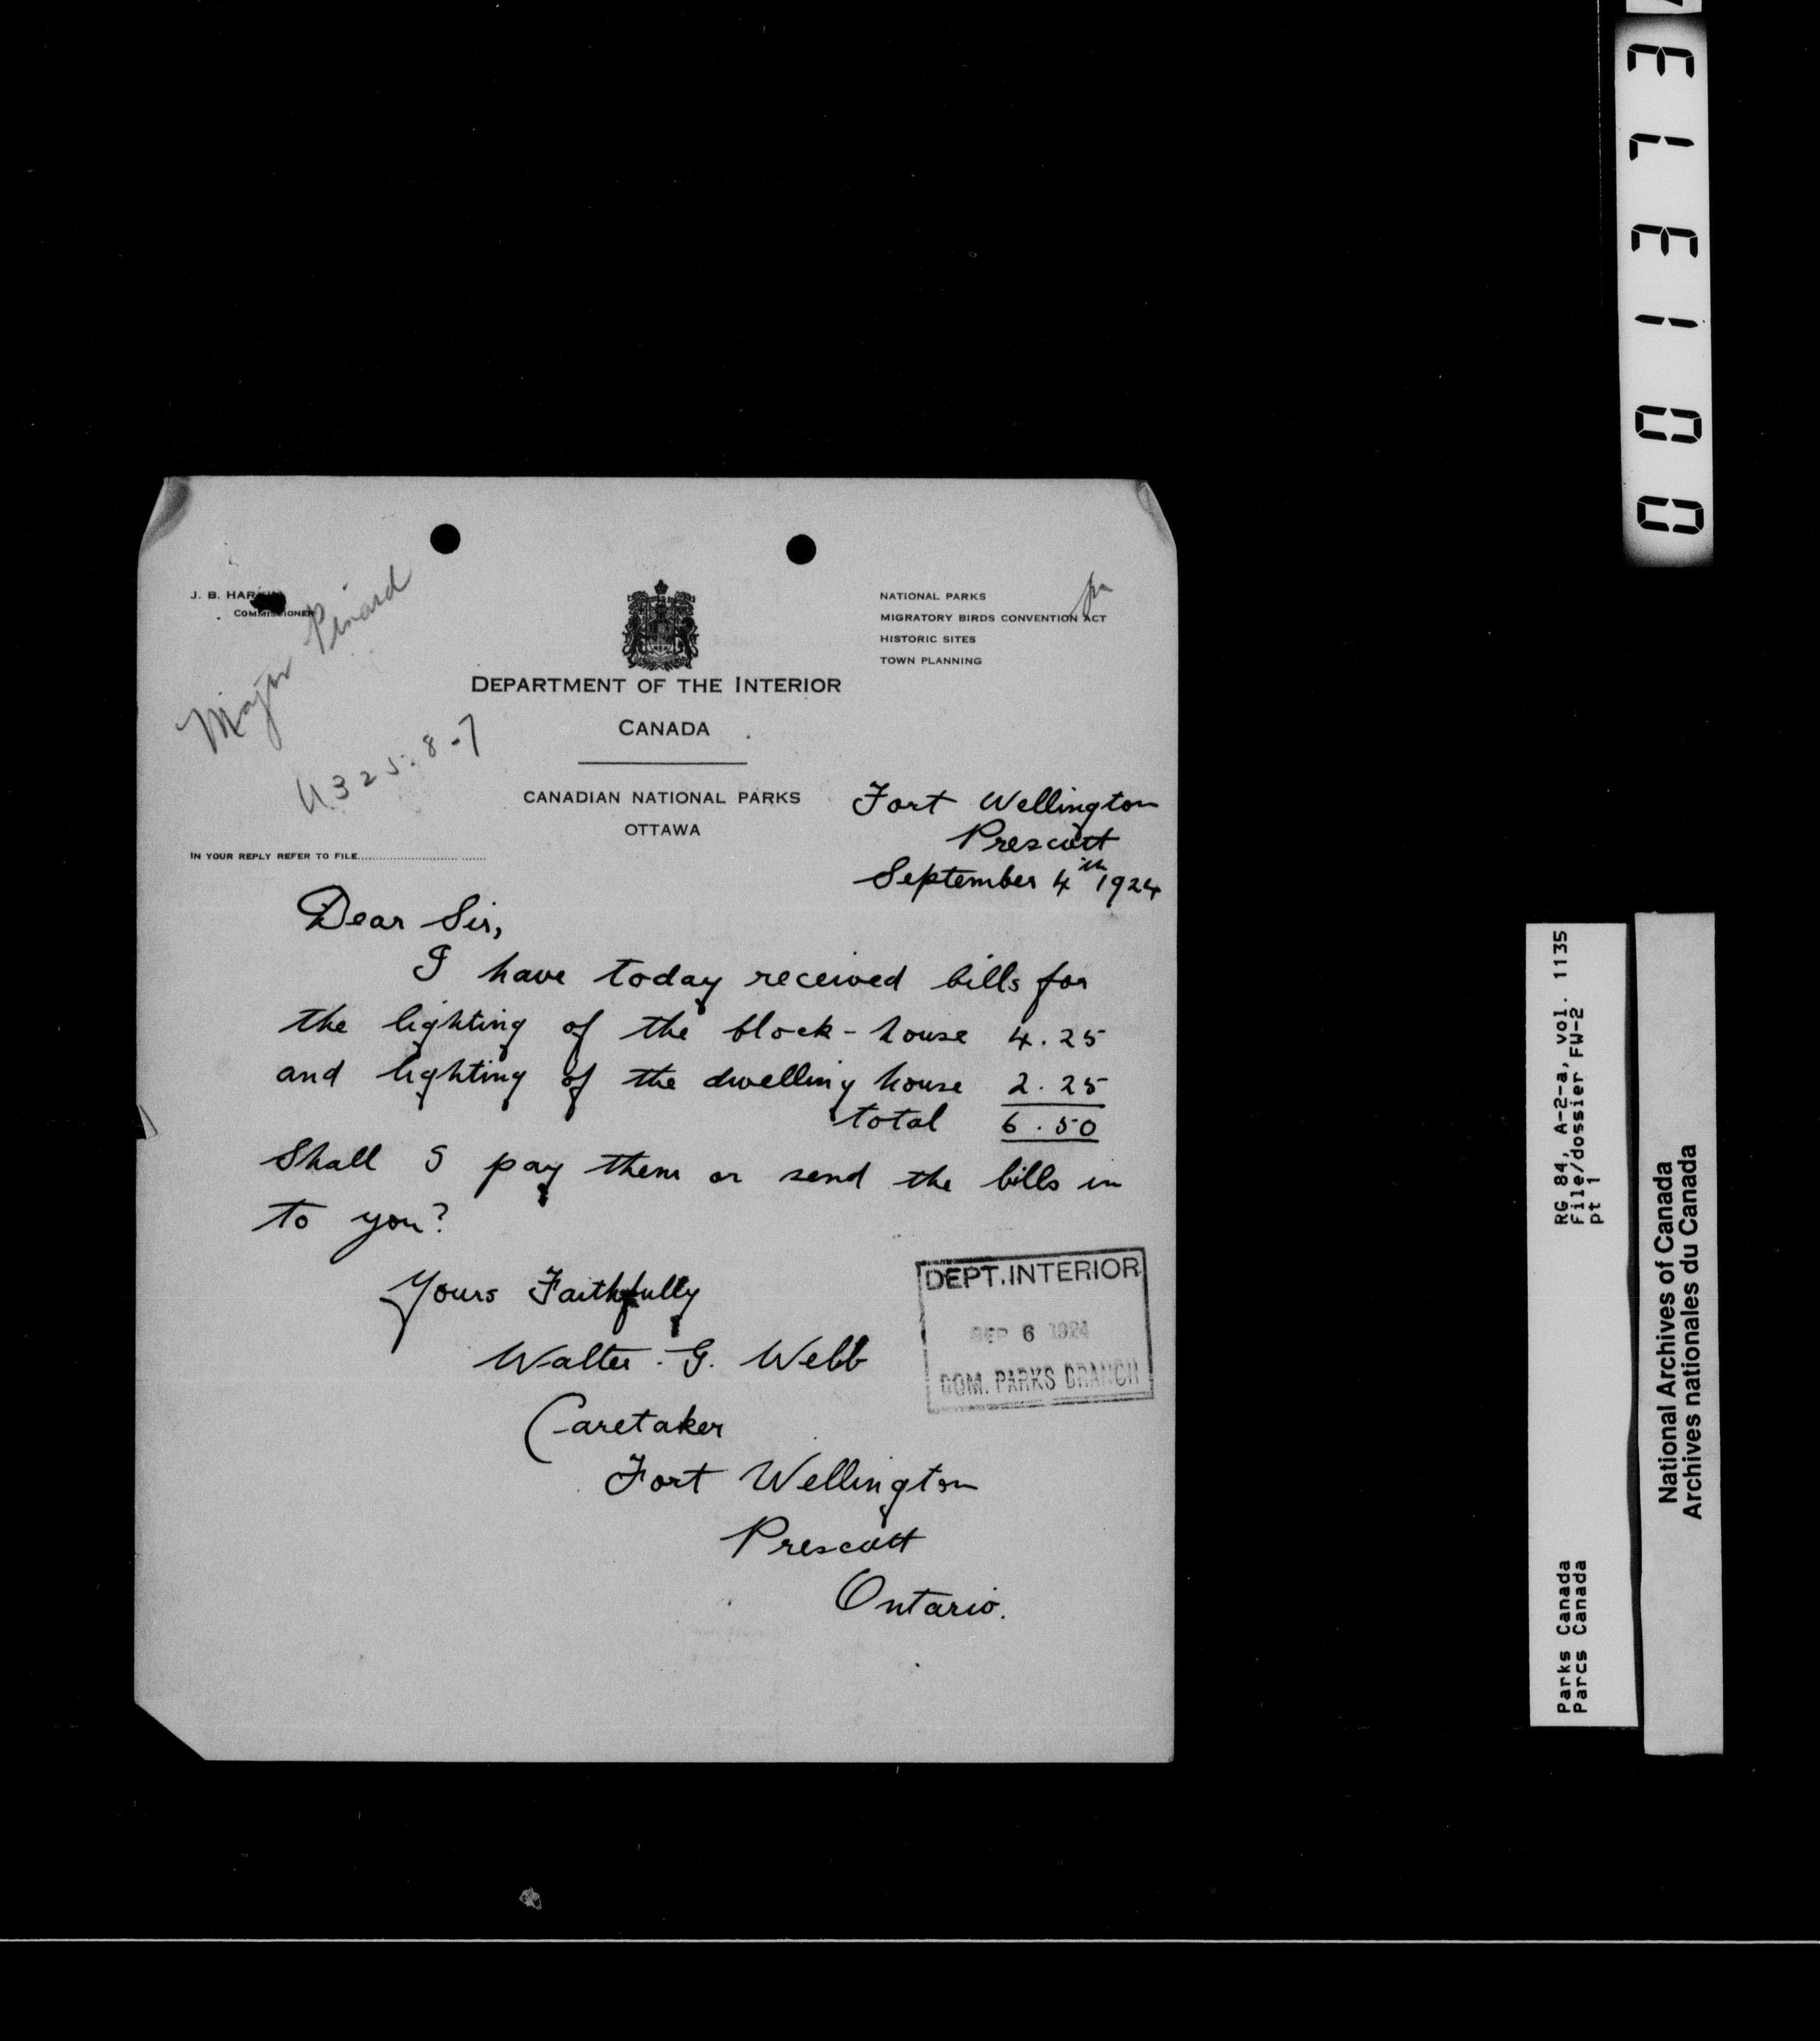 J. B. HARKIN
COMMISSIONER
Major Pinard
U.325.8-7
NATIONAL PARKS
MIGRATORY BIRDS CONVENTION ACT
HISTORIC SITES
TOWN PLANNING
DEPARTMENT OF THE INTERIOR
CANADA
CANADIAN NATIONAL PARKS
OTTAWA
IN YOUR REPLY REFER TO FILE
Fort Wellington
Prescott
September 4th 1924
Dear Sir,
I have today received bills for
the lighting of the block-house 4.25
and lighting of the dwelling house 2.25
total 6.50
Shall I pay them or send the bills in
to you?
Yours Faithfully
Walter. G. Webb
Caretaker
Fort Wellington
Prescott
Ontario.
DEPT. INTERIOR
SEP 6 1924
DOM. PARKS BRANCH
RG 84, A-2-a, vol. 1135
File/dossier FW-2
pt 1
Parks Canada
Parcs Canada
National Archives of Canada
Archives nationales du Canada